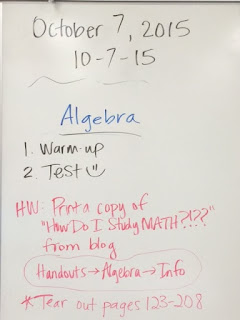 October 7, 2015
10-7-15
Algebra
1. Warm-up
2. Test
HW: Print a copy of
"How Do I Study MATH?!??"
from blog
Handouts→Algebra→Info
*Tear out pages 123-208